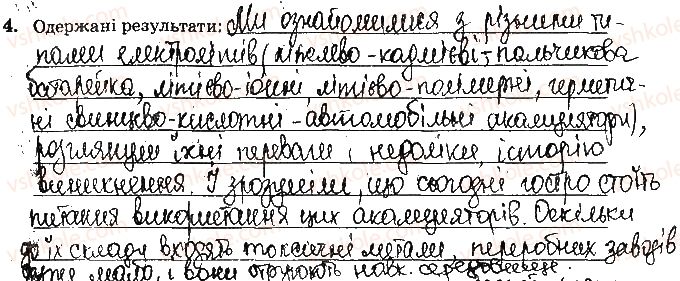 4. Одержані результати: Ми ознайомилися з різними ти-
пами електролітів (нікелево-кадмієві - пальчикова
батарейка, літієво-іонні, літієво-полімерні, герметич-
ні свинцево-кислотні - автомобільні акамулятори),
розглянули їхні переваги і недоліки, історію
виникнення. І зрозуміли, що сьогодні гостро стоїть
питання використання цих акамуляторів. Оскільки
до їх складу входять токсичні метали, переробних заводів
дуже мало, і вони отруюють навк. середовище.